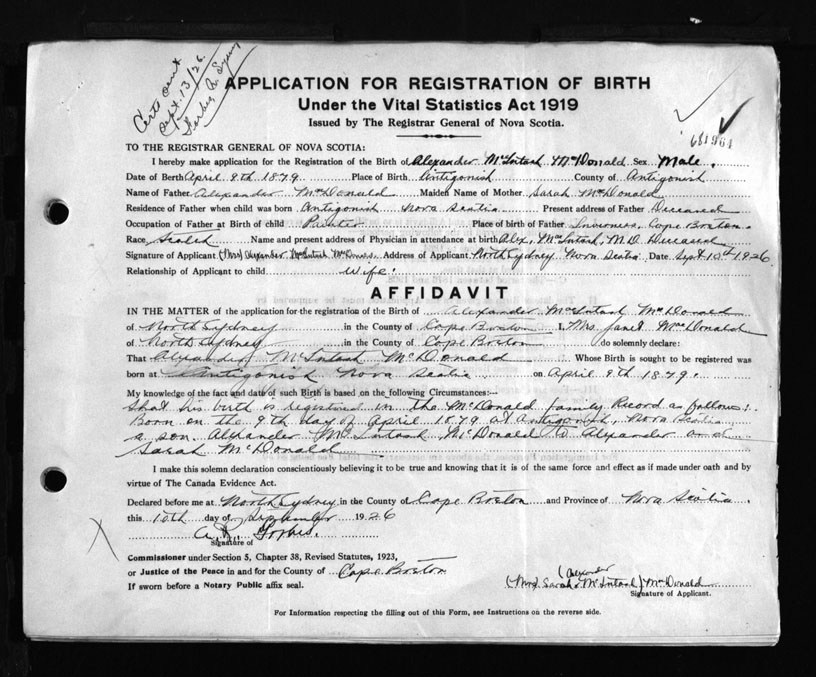 Certs sent
Sept. 13/26.
APPLICATION FOR REGISTRATION OF BIRTH
Under the Vital Statistics Act 1919
Issued by The Registrar General of Nova Scotia.
TO THE REGISTRAR GENERAL OF NOVA SCOTIA:
I hereby make application for the Registration of the Birth of Alexander McIntosh McDonald Sex Male.
Date of Birth April 9th 1879. Place of Birth Antigonish County of Antigonish
Name of Father Alexander McDonald Maiden Name of Mother Sarah McDonald
Residence of Father when child was born Antigonish Nova Scotia Present address of Father Deceased
Occupation of Father at Birth of child Painter Place of birth of Father Inverness, Cape Breton
Race, Scotch Name and present address of Physician in attendance at birth Alex, McIntosh, M.D. Deceased
Signature of Applicant (Mrs) Alexander McIntosh Address of Applicant North Sydney Nova Scotia Date Sept 10th 1926
Relationship of Applicant to child wife.
AFFIDAVIT
IN THE MATTER of the application for the registration of the Birth of Alexander McIntosh McDonald
of North Sydney in the County of Cape Breton I, Mrs. Janet MacDonald
of North Sydney in the County of Cape Breton do solemnly declare:
That Alexander McIntosh McDonald Whose Birth is sought to be registered was
born at Antigonish Nova Scotia on April 9th 1879.
My knowledge of the fact and date of such Birth is based on the following Circumstances:—
that his birth is registered in the McDonald family Record as follows:
Born on the 9th day of April 1879 at Antigonish, Nova Scotia
a son Alexander McIntosh McDonald to Alexander and
Sarah McDonald
I make this solemn declaration conscientiously believing it to be true and knowing that it is of the same force and effect as if made under oath and by
virtue of The Canada Evidence Act.
Declared before me at North Sydney in the County of Cape Breton and Province of Nova Scotia.
this 10th day of September 1926
A. Forbes.
Signature of
Commissioner under Section 5, Chapter 38, Revised Statutes, 1923,
or Justice of the Peace in and for the County of Cape Breton
If sworn before a Notary Public affix seal.
(Alexander
(Mrs) Sarah McIntosh) McDonald
Signature of Applicant.
For Information respecting the filling out of this Form, see Instructions on the reverse side.